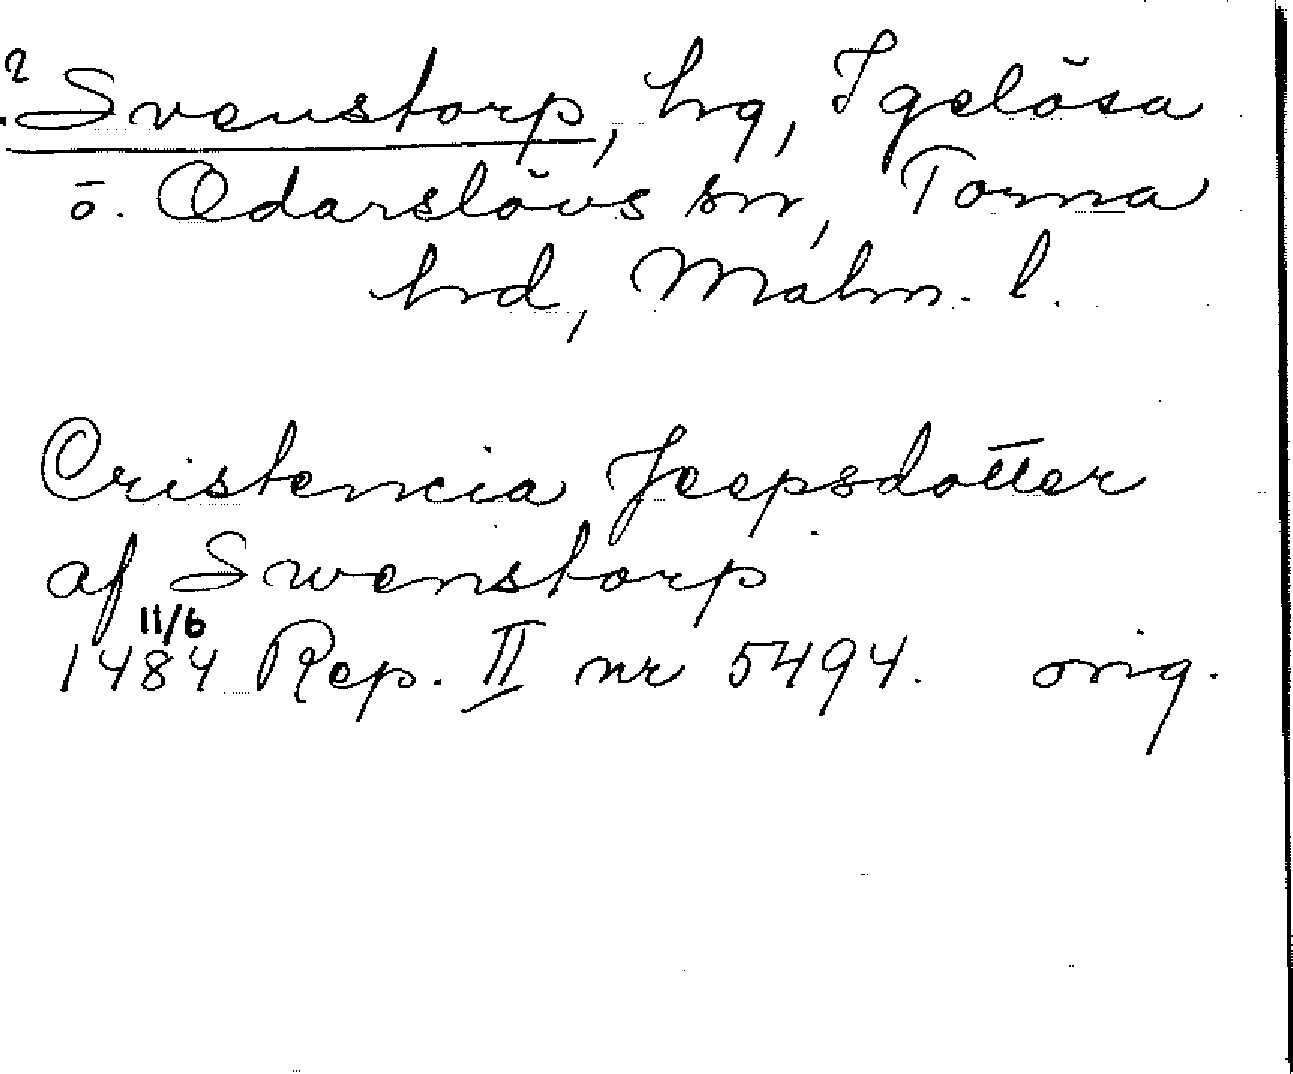 ? Svenstorp, hg, Igelösa
o. Odarslövs sn, Torna
hrd, Malm. l.
Cristencia Jeepsdotter
af Swenstorp
11/6
1484 Rep. II nr 5494. orig.